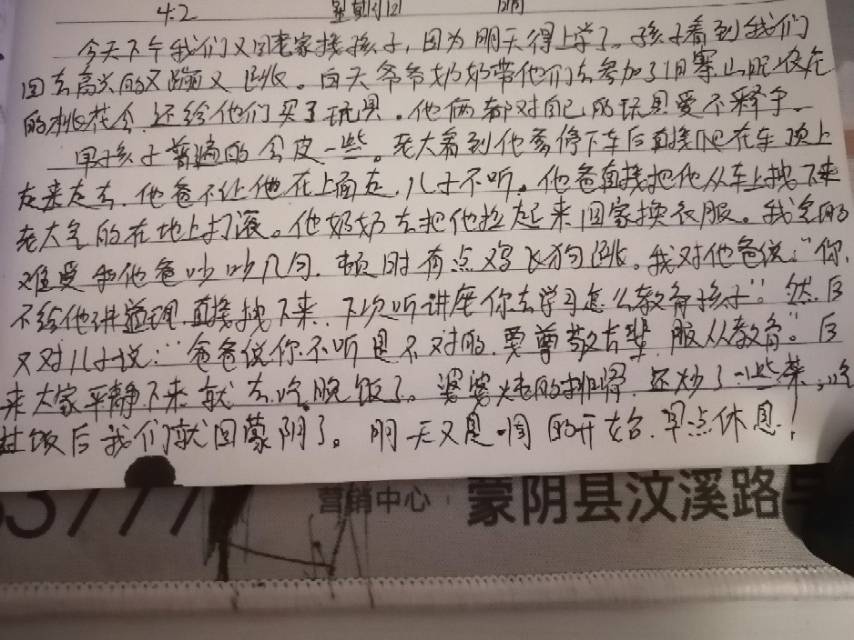 4.2 星期日 晴
今天下午我们又回老家接孩子,因为明天得上学了。孩子看到我们
回去高兴的又蹦又跳。白天爷爷奶奶带他们去参加了旧寨山
的桃花会,还给他们买了玩具。他俩都对自己的玩具爱不释手。
男孩子普遍的会皮一些。老大看到他爸停下车后直接爬在车顶上
走来走去,他爸不让他在上面走,儿子不听。他爸直接把他从车上拽下来
老大气的在地上打滚。他奶奶去把他拉起来回家换衣服。我
难受和他爸吵吵几句,顿时有点鸡飞狗跳。我对他爸说:“你
不给他讲道理,直接拽下来,下次听讲座你去学习怎么教育孩子”。然后
又对儿子说:“爸爸说你不听是不对的,要尊敬长辈,服从教育。”后
来大家平静下来就去吃晚饭了。婆婆炖的排骨,还炒了一些菜,吃
过饭后我们就回蒙阴了。明天又是一周的开始,早点休息!
53777
营销中心
蒙阴县汶溪路